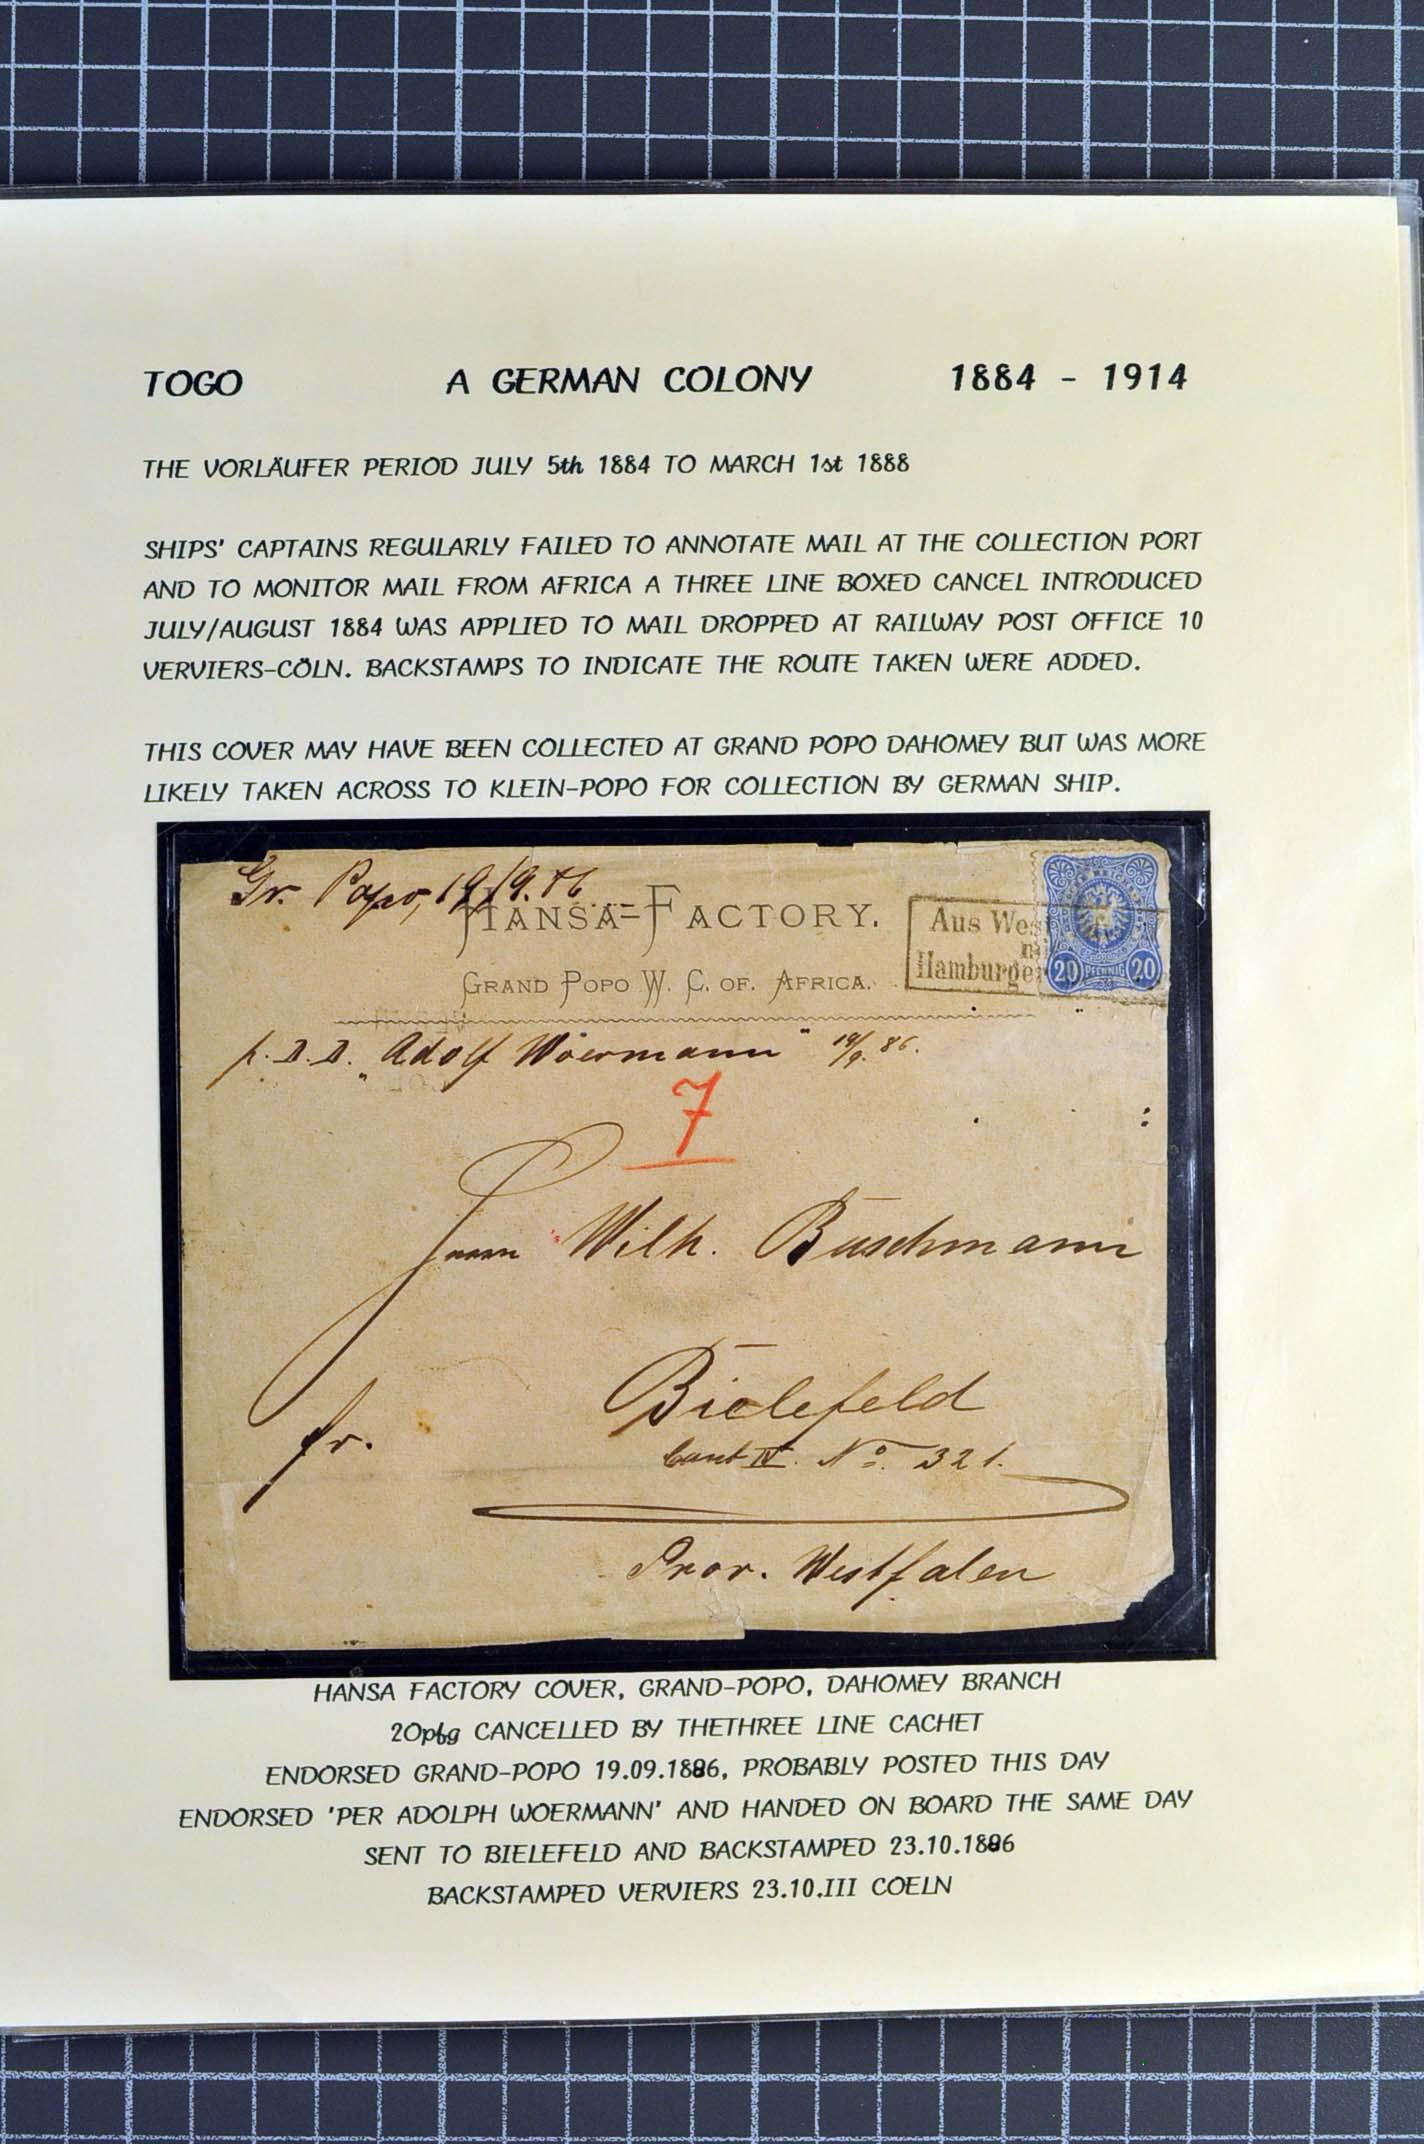 TOGO A GERMAN COLONY 1884 - 1914
THE VORLÄUFER PERIOD JULY 5th 1884 TO MARCH 1st 1888
SHIPS' CAPTAINS REGULARLY FAILED TO ANNOTATE MAIL AT THE COLLECTION PORT
AND TO MONITOR MAIL FROM AFRICA A THREE LINE BOXED CANCEL INTRODUCED
JULY/AUGUST 1884 WAS APPLIED TO MAIL DROPPED AT RAILWAY POST OFFICE 10
VERVIERS-CÖLN. BACKSTAMPS TO INDICATE THE ROUTE TAKEN WERE ADDED.
THIS COVER MAY HAVE BEEN COLLECTED AT GRAND POPO DAHOMEY BUT WAS MORE
LIKELY TAKEN ACROSS TO KLEIN-POPO FOR COLLECTION BY GERMAN SHIP.
Gr. Popo, 19/9.86
HANSA=FACTORY.
GRAND POPO W. C. OF. AFRICA.
Aus Wes
mi
Hamburger
20 PFENNIG 20
p. D. D. „Adolf Woermann" 19/9. 86.
7
Herrn Wilh. Buschmann
Bielefeld
fr.
IV. No. 321.
Prov. Westfalen
HANSA FACTORY COVER, GRAND-POPO, DAHOMEY BRANCH
20pfg CANCELLED BY THETHREE LINE CACHET
ENDORSED GRAND-POPO 19.09.1886, PROBABLY POSTED THIS DAY
ENDORSED 'PER ADOLPH WOERMANN' AND HANDED ON BOARD THE SAME DAY
SENT TO BIELEFELD AND BACKSTAMPED 23.10.1886
BACKSTAMPED VERVIERS 23.10.III COELN